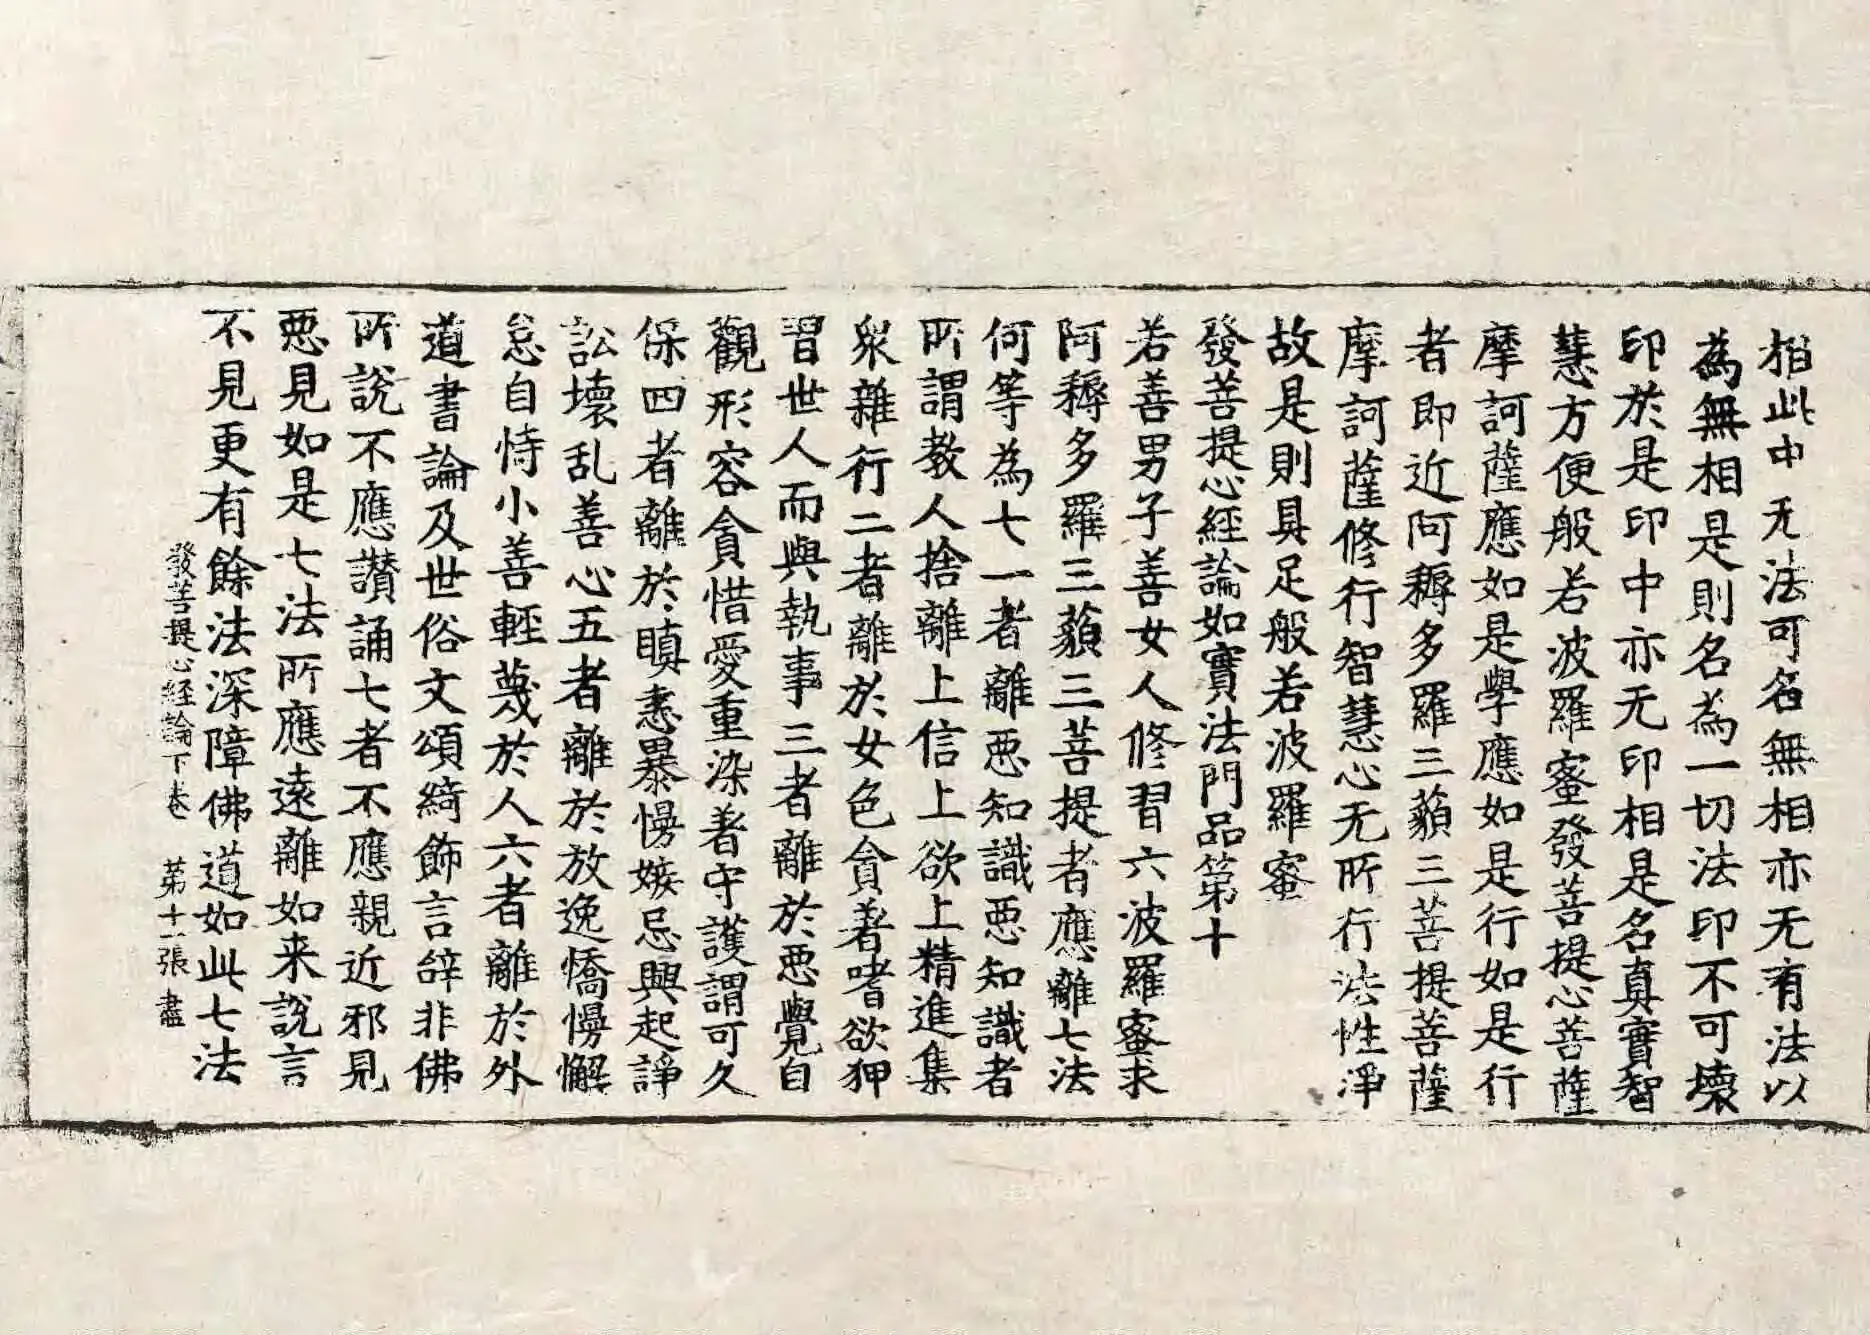 相此中无法可名無相亦无有法以
為無相是則名為一切法印不可壞
印於是印中亦无印相是名真實智
慧方便般若波羅蜜發菩提心菩薩
摩訶薩應如是學應如是行如是行
者即近阿耨多羅三藐三菩提菩薩
摩訶薩修行智慧心无所行法性淨
故是則具足般若波羅蜜
發菩提心經論如實法門品第十
若善男子善女人修習六波羅蜜求
阿耨多羅三藐三菩提者應離七法
何等為七一者離惡知識惡知識者
所謂教人捨離上信上欲上精進集
衆雜行二者離於女色貪著嗜欲狎
習世人而與執事三者離於惡覺自
觀形容貪惜愛重染著守護謂可久
保四者離於瞋恚㬥慢嫉忌興起諍
訟壞乱善心五者離於放逸憍慢懈
怠自恃小善輕蔑於人六者離於外
道書論及世俗文頌綺飾言辞非佛
所說不應讃誦七者不應親近邪見
惡見如是七法所應遠離如来說言
不見更有餘法深障佛道如此七法
發菩提心經論下卷 第十一張 盡